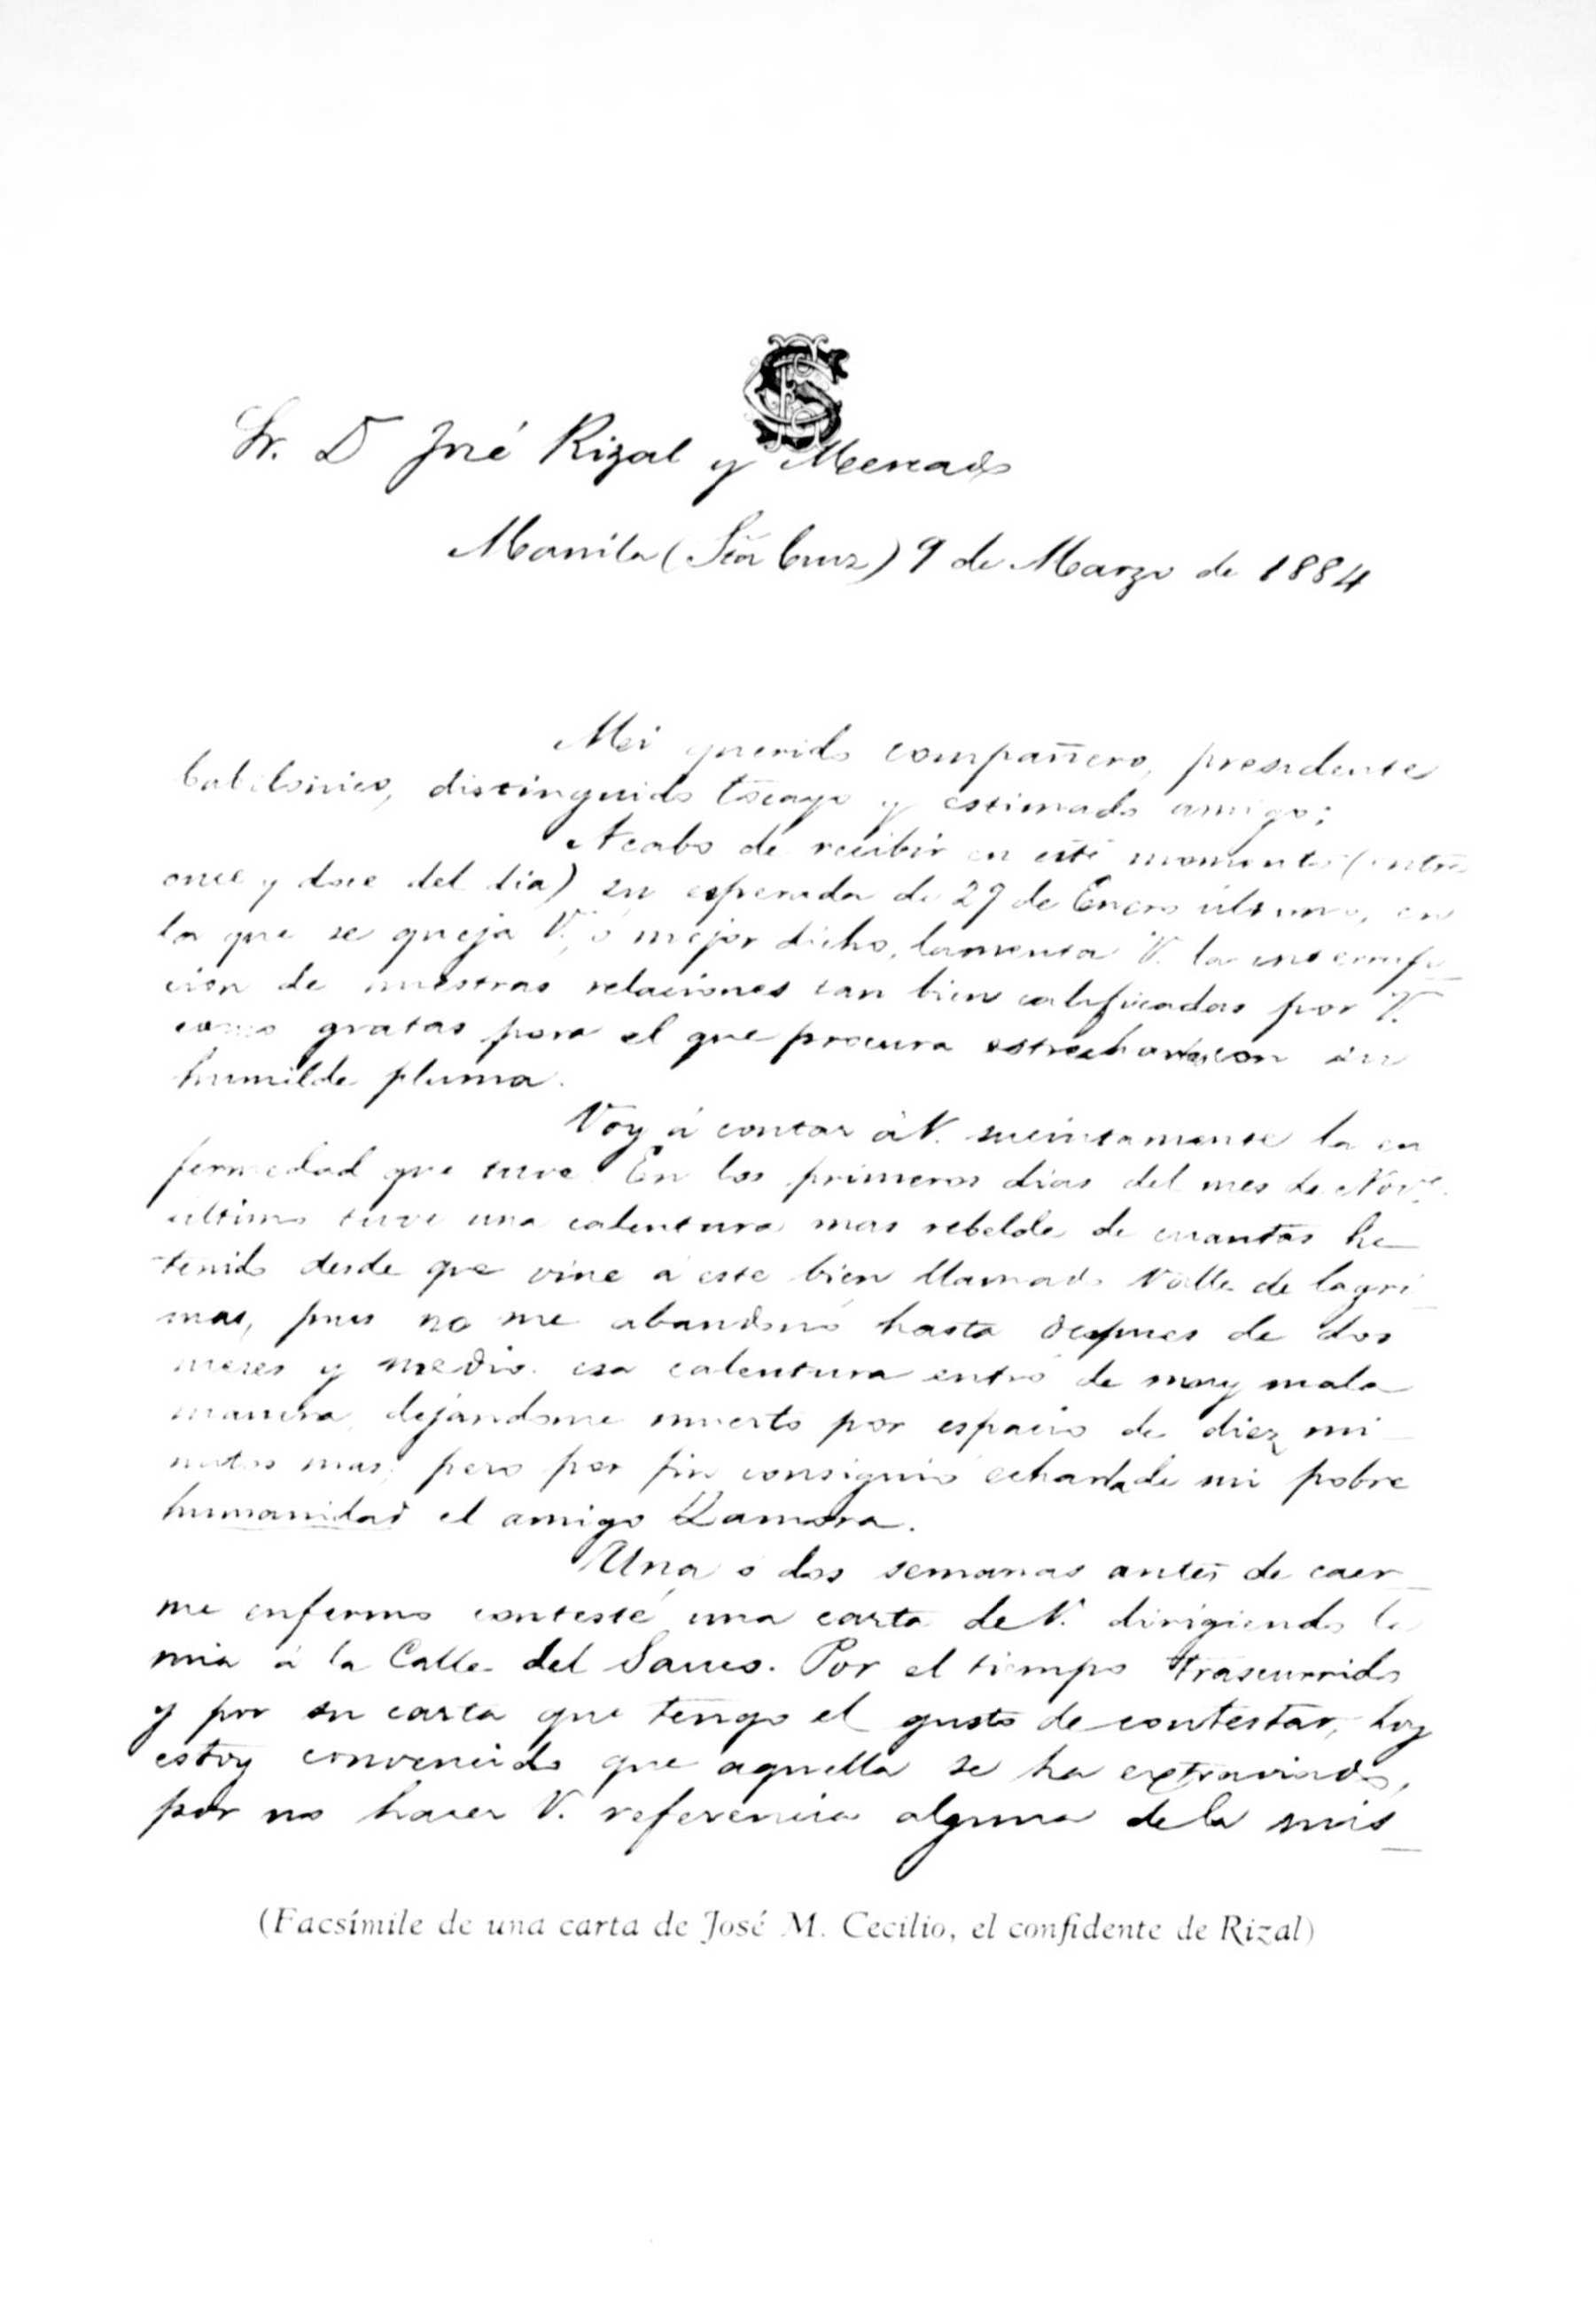 Sr. D José Rizal y Mercado
Manila (Sta Cruz) 9 de Marzo de 1884
Mi querido compañero, presidente
babilónico, distinguido tocayo y estimado amigo;
Acabo de recibir en este momento (entre
once y doce del dia) su esperada de 29 de Enero último, en
la que se queja V., ó mejor dicho, lamenta V. la interrup
cion de nuestras relaciones tan bien calificadas por V.
como gratas para el que procura estrecharlas con su
humilde pluma.
Voy á contar á V. sucintamente la en
fermedad que tuve. En los primeros dias del mes de Nov.e
último tuve una calentura mas rebelde de cuantas he
tenido desde que vine á este bien llamado Valle de lagri
mas, pues no me abandonó hasta despues de dos
meses y medio. esa calentura entró de muy mala
manera, dejandome muerto por espacio de diez mi
nutos mas; pero por fin consiguió echarla de mi pobre
humanidad el amigo Zamora.
Una ó dos semanas antes de caer
me enfermo contesté una carta de V. dirigiendo la
mia á la Calle del Sauco. Por el tiempo trascurrido
y por su carta que tengo el gusto de contestar, hoy
estoy convencido que aquella se ha extraviado,
por no hacer V. referencia alguna de la mis
(Facsímile de una carta de José M. Cecilio, el confidente de Rizal)